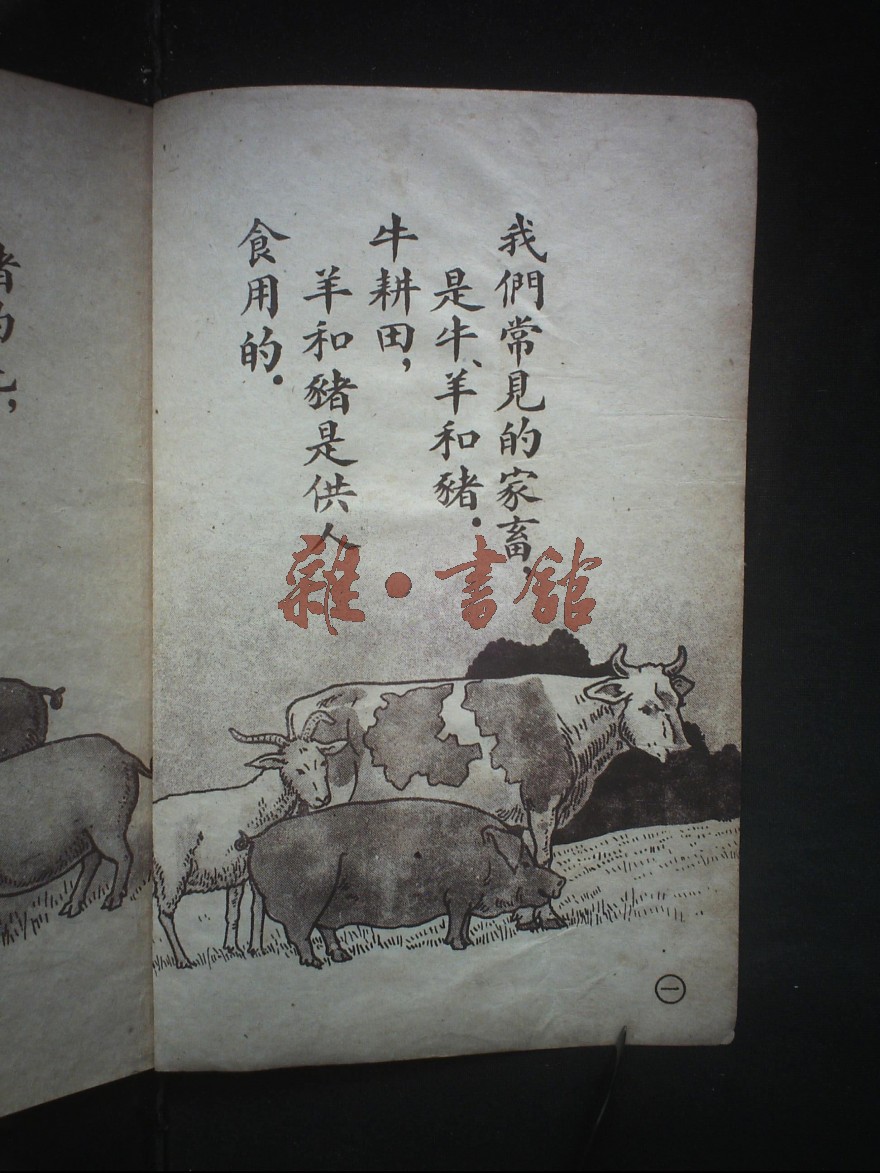 我們常見的家畜,
是牛、羊和豬.
牛耕田,
羊和豬是供人
食用的.
雜·書館
一